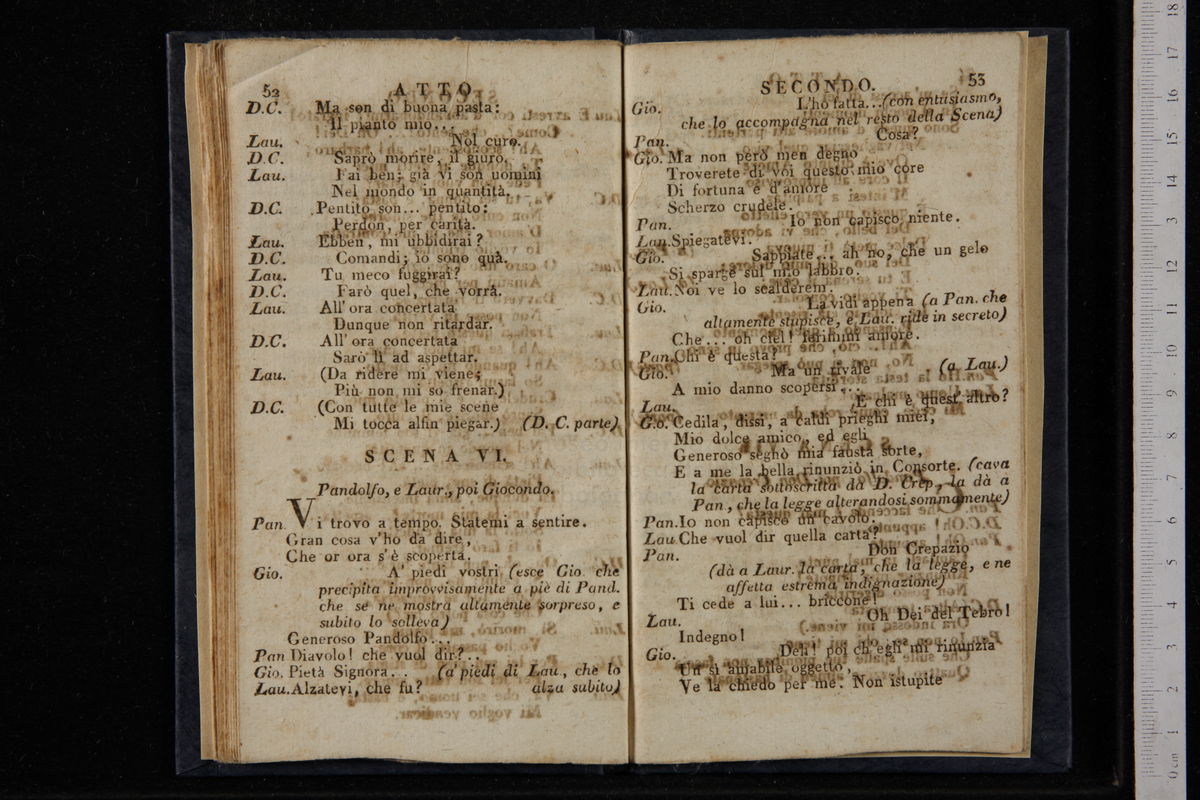 52 ATTO
D.C. Ma son di buona pasta:
Il pianto mio...
Lau. Nol curo.
D.C. Saprò morire, il giuro.
Lau. Fai ben; già vi son uomini
Nel mondo in quantità.
D.C. Pentito son... pentito:
Perdon, per carità.
Lau. Ebben, mi ubbidirai?
D.C. Comandi; io sono quà.
Lau. Tu meco fuggirai?
D.C. Farò quel, che vorrà.
Lau. All' ora concertata
Dunque non ritardar.
D.C. All' ora concertata
Sarò lì ad aspettar.
Lau. (Da ridere mi viene;
Più non mi so frenar.)
D.C. (Con tutte le mie scene
Mi tocca alfin piegar.) (D. C. parte)
SCENA VI.
Pandolfo, e Laur., poi Giocondo.
Pan. Vi trovo a tempo. Statemi a sentire.
Gran cosa v'ho da dire,
Che or ora s'è scoperta.
Gio. A' piedi vostri (esce Gio. che
precipita improvvisamente a piè di Pand.
che se ne mostra altamente sorpreso, e
subito lo solleva)
Generoso Pandolfo...
Pan. Diavolo! che vuol dir?..
Gio. Pietà Signora... (a' piedi di Lau., che lo
Lau. Alzatevi, che fu? alza subito)
SECONDO. 53
Gio. L'ho fatta... (con entusiasmo,
che lo accompagna nel resto della Scena)
Pan. Cosa?
Gio. Ma non però men degno
Troverete di voi questo mio core
Di fortuna e d'amore
Scherzo crudele.
Pan. Io non capisco niente.
Lau. Spiegatevi.
Gio. Sappiate... ah no, che un gelo
Si sparge sul mio labbro.
Lau. Noi ve lo scalderem.
Gio. La vidi appena (a Pan. che
altamente stupisce, e Lau. ride in secreto)
Che... oh ciel! ferimmi amore.
Pan. Chi è questa?
Gio. Ma un rivale (a Lau.)
A mio danno scopersi...
Lau. E chi è quest' altro?
Gio. Cedila, dissi, a caldi prieghi miei,
Mio dolce amico, ed egli
Generoso segnò mia fausta sorte,
E a me la bella rinunziò in Consorte. (cava
la carta sottoscritta da D. Crep., la dà a
Pan., che la legge alterandosi sommamente)
Pan. Io non capisco un cavolo.
Lau. Che vuol dir quella carta?
Pan. Don Crepazio
(dà a Laur. la carta, che la legge, e ne
affetta estrema indignazione)
Ti cede a lui... briccone!
Lau. Oh Dei del Tebro!
Indegno!
Gio. Deh! poi ch'egli mi rinunzia
Un sì amabile oggetto,
Ve la chiedo per me. Non istupite